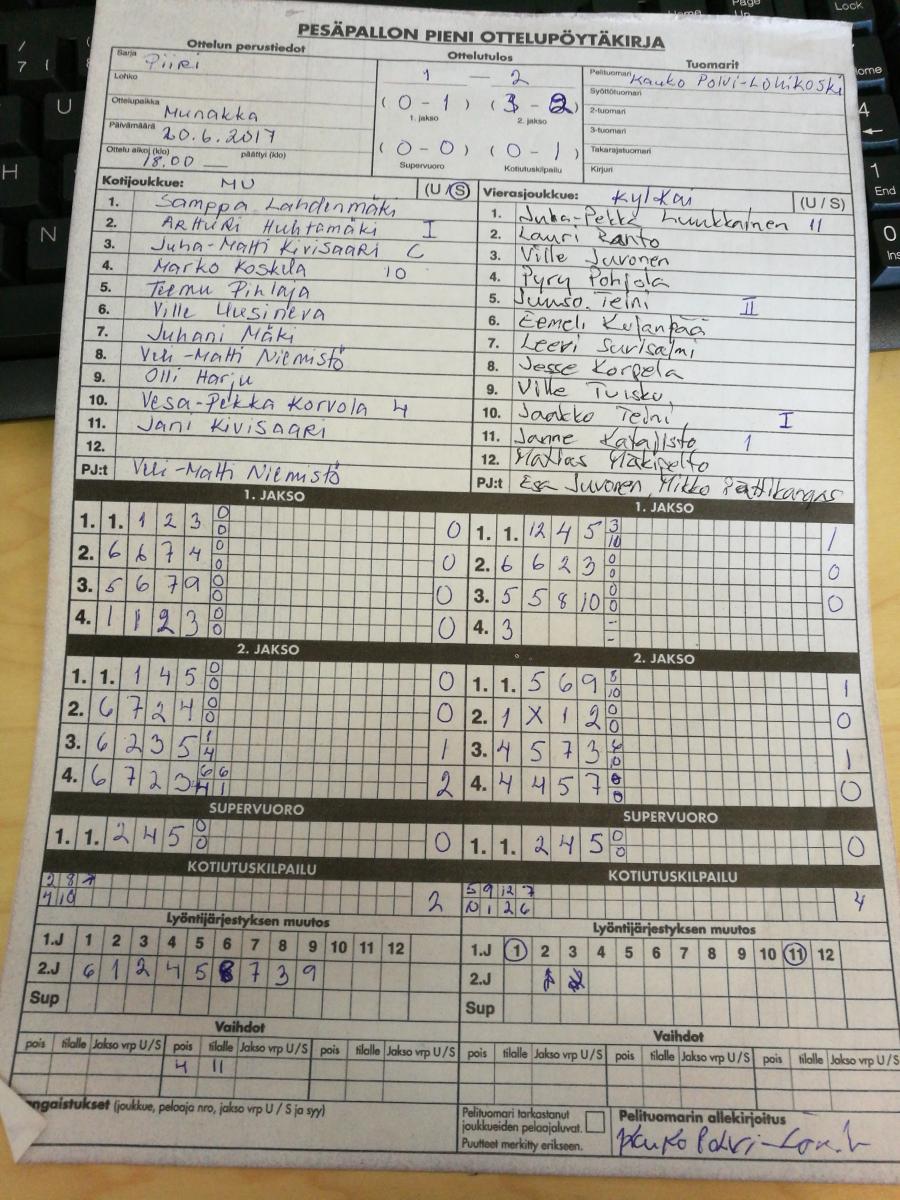 PESÄPALLON PIENI OTTELUPÖYTÄKIRJA
Ottelun perustiedot
Sarja Piiri
Lohko
Ottelupaikka Munakka
Päivämäärä 20.6.2017
Ottelu alkoi (klo) 18.00 päättyi (klo)
Ottelutulos
1 — 2
(0 - 1) (3 - 2)
1. jakso 2. jakso
(0 - 0) (0 - 1)
Supervuoro Kotiutuskilpailu
Tuomarit
Pelituomari Kauko Polvi-Lohikoski
Syöttötuomari
2-tuomari
3-tuomari
Takarajatuomari
Kirjuri
Kotijoukkue: MU (U / S)
1. Samppa Lahdenmäki
2. Artturi Huhtamäki I
3. Juha-Matti Kivisaari C
4. Marko Koskela 10
5. Teemu Pihlaja
6. Ville Uusineva
7. Juhani Mäki
8. Veli-Matti Niemistö
9. Olli Harju
10. Vesa-Pekka Korvola 4
11. Jani Kivisaari
12.
PJ:t Veli-Matti Niemistö
Vierasjoukkue: Ky/Kai (U / S)
1. Juha-Pekka Luukkainen 11
2. Lauri Ranto
3. Ville Juvonen
4. Pyry Pohjola
5. Juuso Teini II
6. Eemeli Kujanpää
7. Leevi Surisalmi
8. Jesse Korpela
9. Ville Tuisku
10. Jaakko Teini I
11. Janne Katajisto 1
12. Matias Mäkipelto
PJ:t Esa Juvonen, Mikko
1. JAKSO
1. 1. 1 2 3 0 0 0
2. 6 6 7 4 0 0 0
3. 5 6 7 9 0 0 0
4. 1 1 2 3 0 0 0
2. JAKSO
1. 1. 1 4 5 0 0 0
2. 6 7 2 4 0 0 0
3. 6 2 3 5 1 4 1
4. 6 7 2 3 6 6 4 1 2
SUPERVUORO
1. 1. 2 4 5 0 0 0
KOTIUTUSKILPAILU
2 8
4 10 2
1. JAKSO
1. 1. 12 4 5 3 10 1
2. 6 6 2 3 0 0 0
3. 5 5 8 10 0 0 0
4. 3 - -
2. JAKSO
1. 1. 5 6 9 8 10 1
2. 1 X 1 2 0 0 0
3. 4 5 7 3 10 1
4. 4 4 5 7 0 0 0
SUPERVUORO
1. 1. 2 4 5 0 0 0
KOTIUTUSKILPAILU
5 9 12 7
10 1 2 6 4
Lyöntijärjestyksen muutos
1.J 1 2 3 4 5 6 7 8 9 10 11 12
2.J 6 1 2 4 5 8 7 3 9
Sup
Lyöntijärjestyksen muutos
1.J 1 2 3 4 5 6 7 8 9 10 11 12
2.J
Sup
Vaihdot
pois tilalle Jakso vrp U/S pois tilalle Jakso vrp U/S pois tilalle Jakso vrp U/S
4 11
Vaihdot
pois tilalle Jakso vrp U/S pois tilalle Jakso vrp U/S pois tilalle Jakso vrp U/S
ngaistukset (joukkue, pelaaja nro, jakso vrp U / S ja syy)
Pelituomari tarkastanut
joukkueiden pelaajaluvat.
Puutteet merkitty erikseen.
Pelituomarin allekirjoitus